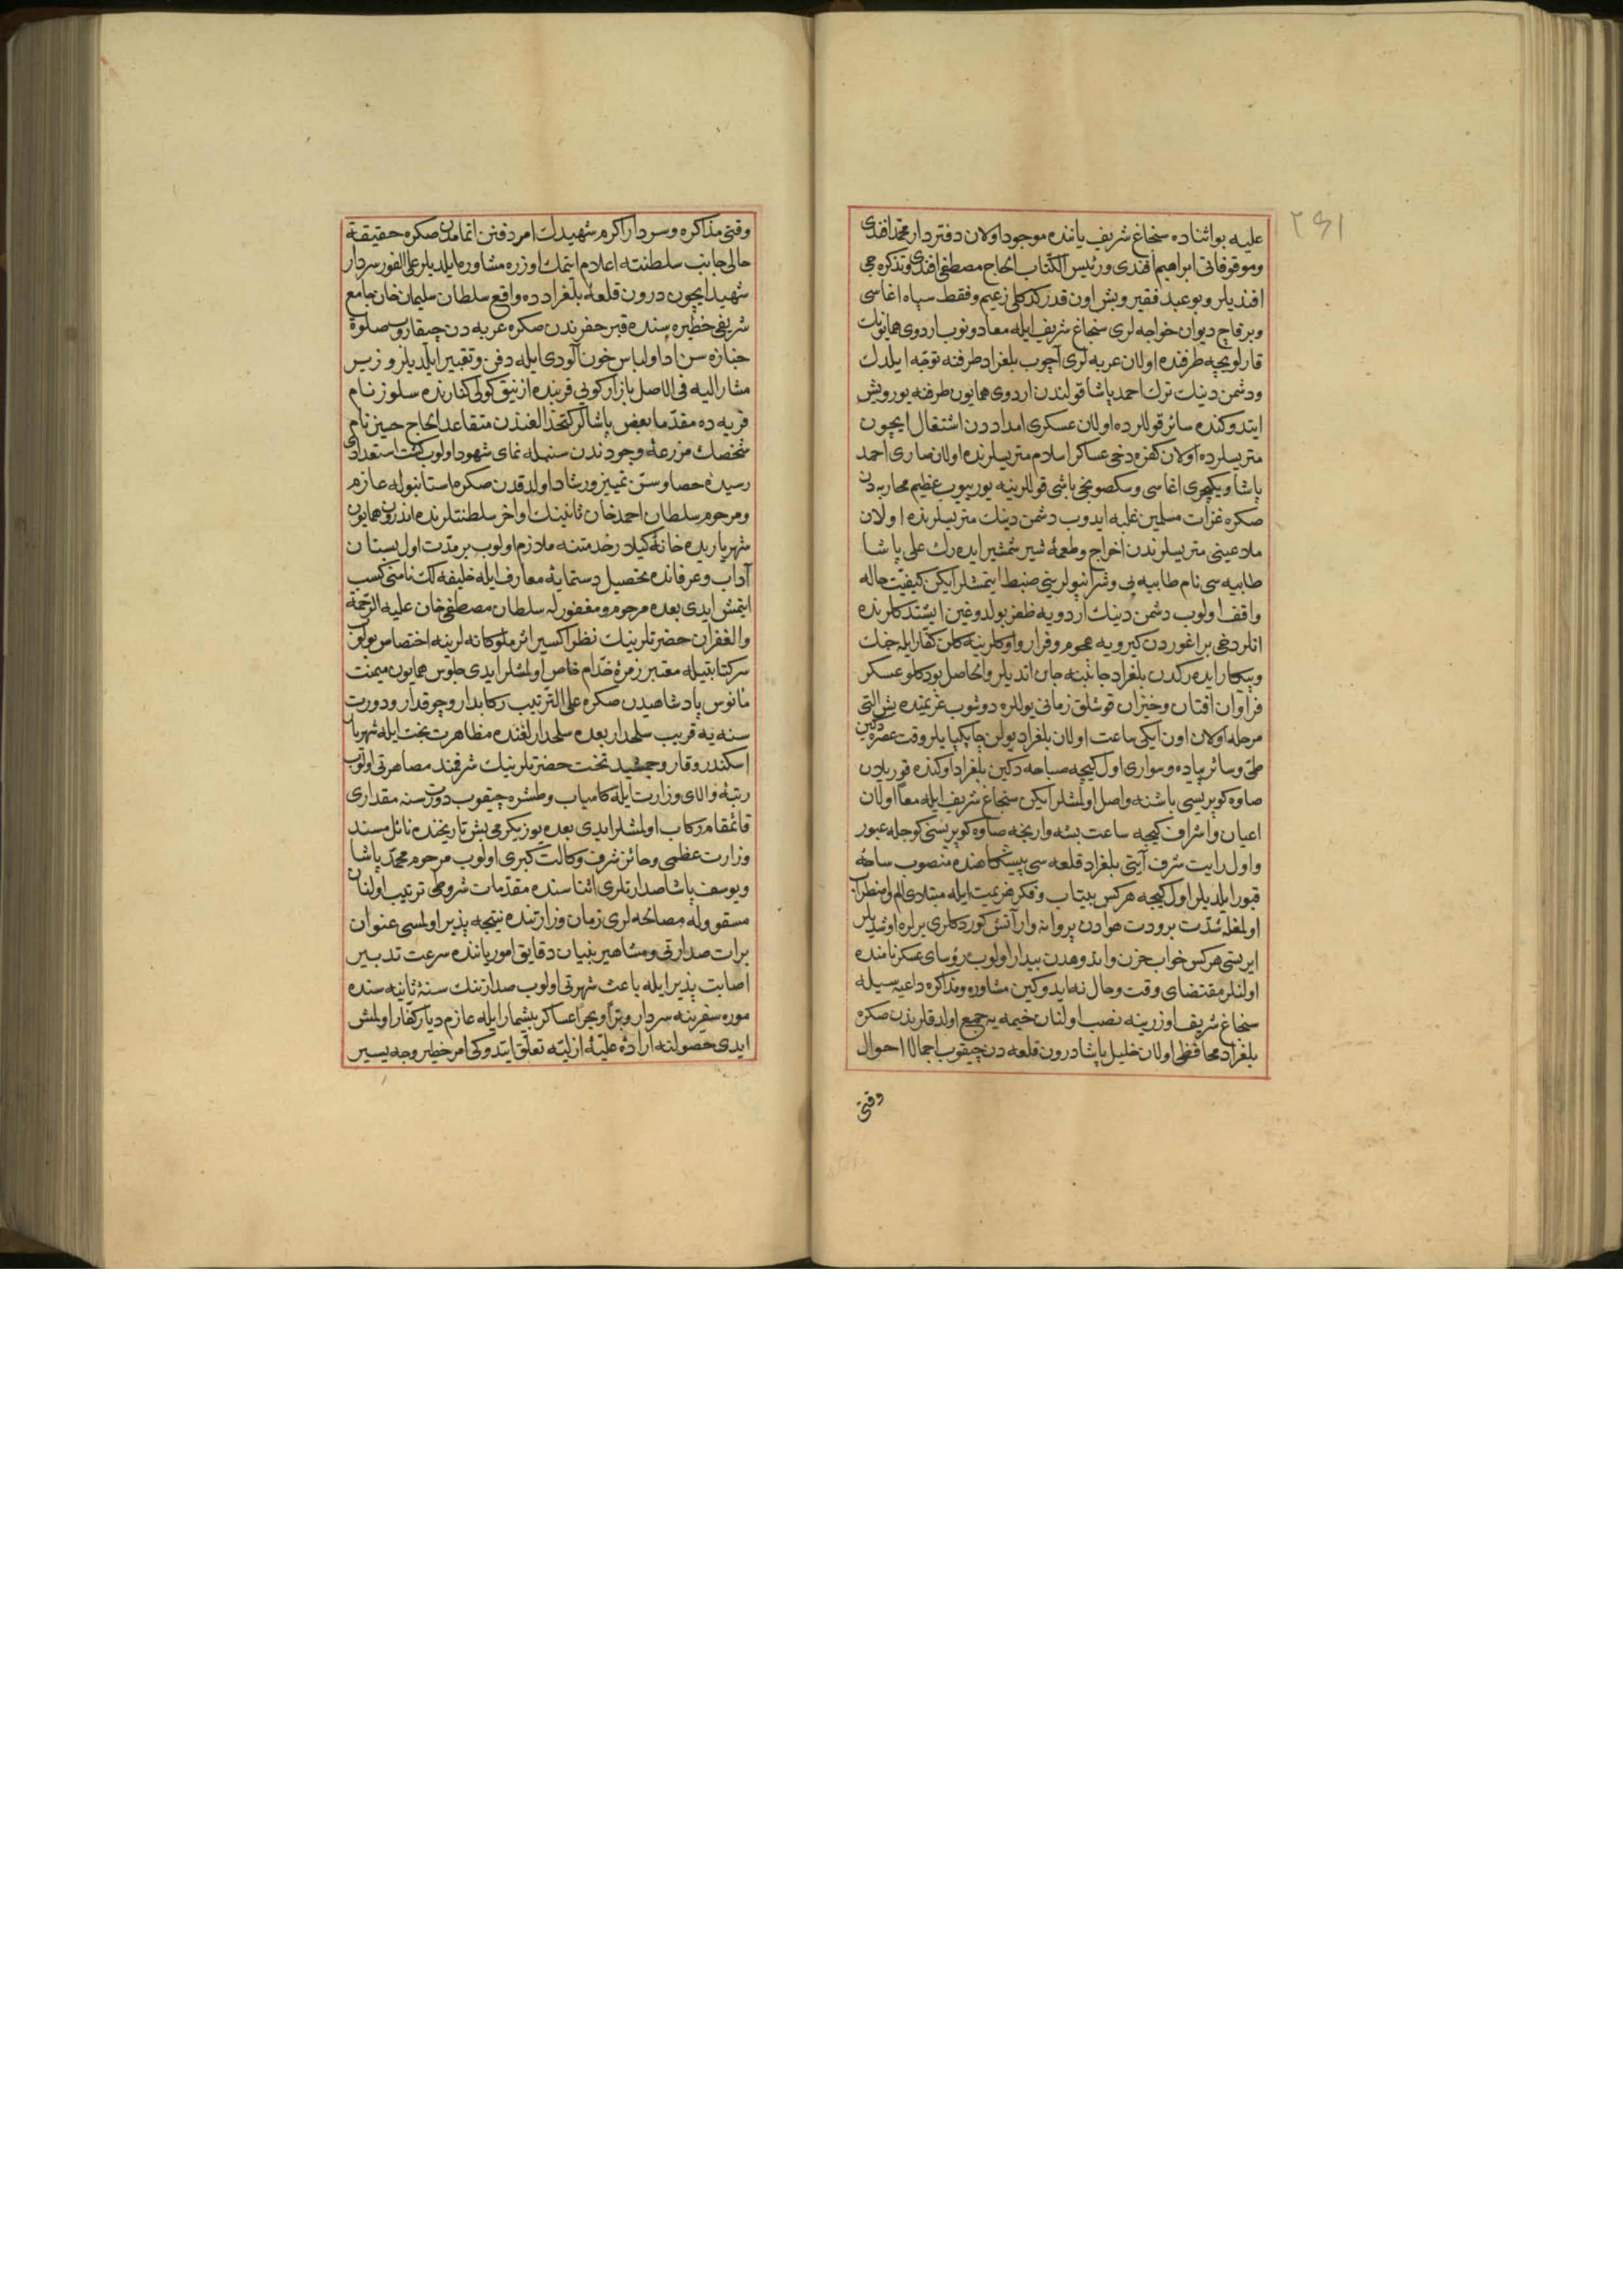 ٢٩١
علیه بو اثناده سنجاغ شریف یاننده موجود اولان دفتردار محمد افندی
وموقوفاتی ابراهیم افندی ورئیس الکتاب الحاج مصطفی افندی وتذکره جی
افندیلر وبو عبد فقیر وبش اون قدر کدکلی زعیم وفقط سپاه اغاسی
وبرقاج دیوان خواجه لری سنجاغ شریف ایله معا دونوب اردوی همایونک
قارلویجه طرفنده اولان عربه لری آچوب بلغراد طرفنه توجه ایلدک
ودشمن دینک ترک احمد پاشا قولندن اردوی همایون طرفنه یورویش
ایتدوکنده سائر قوللرده اولان عسکری امداددن اشتغال ایچون
متریسلرده اولان کفره دخی عساکر اسلام متریسلرنده اولان صاری احمد
پاشا ویکیچری اغاسی وسکصونجی باشی قوللرینه یوریوب عظیم محاربه دن
صکره غزات مسلمین غلبه ایدوب دشمن دینک متریسلرنده اولان
ملاعینی متریسلرندن اخراج وطعمهٔ شیر شمشیر ایده رک علی پاشا
طابیه سی نام طابیه یی وشرانپولرینی ضبط ایتمشلر ایکن کیفیت حاله
واقف اولوب دشمن دینک اردویه ظفر بولدوغین ایشتدکلرنده
انلر دخی براغوردن کیرویه هجوم وفرار واوکلرینه کلن کفار ایله جنک
وپیکار ایده رکدن بلغراد جانبنه جان اتدیلر والحاصل بودکلو عسکر
فراوان افتان وخیزان قوشلق زمانی یوللره دوشوب عزیمتده بش التی
مرحله اولان اون ایکی ساعت اولان بلغراد یولن چاپکپایلر وقت عصره دکین
طی وسائر پیاده وسواری اول کیجه صباحه دکین بلغراد اوکنده قوریلان
صاوه کوپریسی باشنه واصل اولمشلر ایکن سنجاغ شریف ایله معا اولان
اعیان واشراف کیجه ساعت بشه وارنجه صاوه کوپریسنی کوجله عبور
واول رایت شرف آیتی بلغراد قلعه سی پیشکاهنده منصوب ساحهٔ
قبور ایلدیلر اول کیجه هرکس بیتاب وفکر هزیمت ایله مبتلای الم واضطراب
اولمغله شدت برودت هوادن پروانه وار آتش کوردکلری یرلره اوشدیلر
ایرتسی هرکس خواب حزن واندوهدن بیدار اولوب رؤسای عسکر نامنده
اولنلر مقتضای وقت وحال نه ایدوکین مشاوره ومذاکره داعیه سیله
سنجاغ شریف اوزرینه نصب اولنان خیمه یه جمع اولدقلرندن صکره
بلغراد محافظی اولان خلیل پاشا درون قلعه دن چیقوب اجمالا احوال
وقتی
وقتی مذاکره وسردار اکرم شهیدک امر دفنن اتمامدن صکره حقیقة
حالی جانب سلطنته اعلام ایتمک اوزره مشاوره ایلدیلر علی الفور سردار
شهید ایچون درون قلعهٔ بلغرادده واقع سلطان سلیمان خان جامع
شریفی حظیره سنده قبر حفرندن صکره عربه دن چیقاروب صلوة
جنازه سن ادا ولباس خون آلودی ایله دفن وتقبیر ایلدیلر وزیر
مشار الیه فی الاصل بازارکویی قربنده ازنیق کولی کنارنده سلوز نام
قریه ده مقدما بعض پاشالر کتخدالغندن متقاعد الحاج حسین نام
شخصک مزرعهٔ وجودندن سنبله نمای شهود اولوب کشت استعدادی
رسیدهٔ حصاد وسن تمییز ورشاد اولدقدن صکره استانبوله عازم
ومرحوم سلطان احمد خان ثانینک اواخر سلطنتلرنده اندرون همایون
شهریاریده خانهٔ کیلار خدمتنه ملازم اولوب بر مدت اول بستان
آداب وعرفانده تحصیل دستمایهٔ معارف ایله خلیفه لک نامنی کسب
ایتمش ایدی بعده مرحوم ومغفور له سلطان مصطفی خان علیه الرحمة
والغفران حضرتلرینک نظر اکسیر اثر ملوکانه لرینه اختصاص بولوب
سرکتابتیله معتبر زمرهٔ خدام خاص اولمشلر ایدی جلوس همایون میمنت
مأنوس پادشاهیدن صکره علی الترتیب رکابدار وچوقدار ودورت
سنه یه قریب سلحدار بعده سلحدارلغنده مظاهرت بخت ایله شهریار
اسکندر وقار وجمشید تخت حضرتلرینک شرفمند مصاهرتی اولوب
رتبهٔ والای وزارت ایله کامیاب وطشره چیقوب دورت سنه مقداری
قائمقام رکاب اولمشلر ایدی بعده یوز یکرمی بش تاریخنده نائل مسند
وزارت عظمی وحائز شرف وکالت کبری اولوب مرحوم محمد پاشا
ویوسف پاشا صدارتلری اثناسنده مقدمات شروطی ترتیب اولنان
مسقو وله مصالحه لری زمان وزارتنده نتیجه پذیر اولمسی عنوان
برات صدارتی ومشاهیر بنیان دقایق امور یاننده سرعت تدبیر
اصابت پذیر ایله باعث شهرتی اولوب صدارتنک سنهٔ ثانیه سنده
موره سفرینه سردار وبرا وبحرا عساکر بیشمار ایله عازم دیار کفار اولمش
ایدی حصولنه ارادهٔ علیهٔ ازلیه تعلق ایتدوکی امر خطیر وجه یسیر